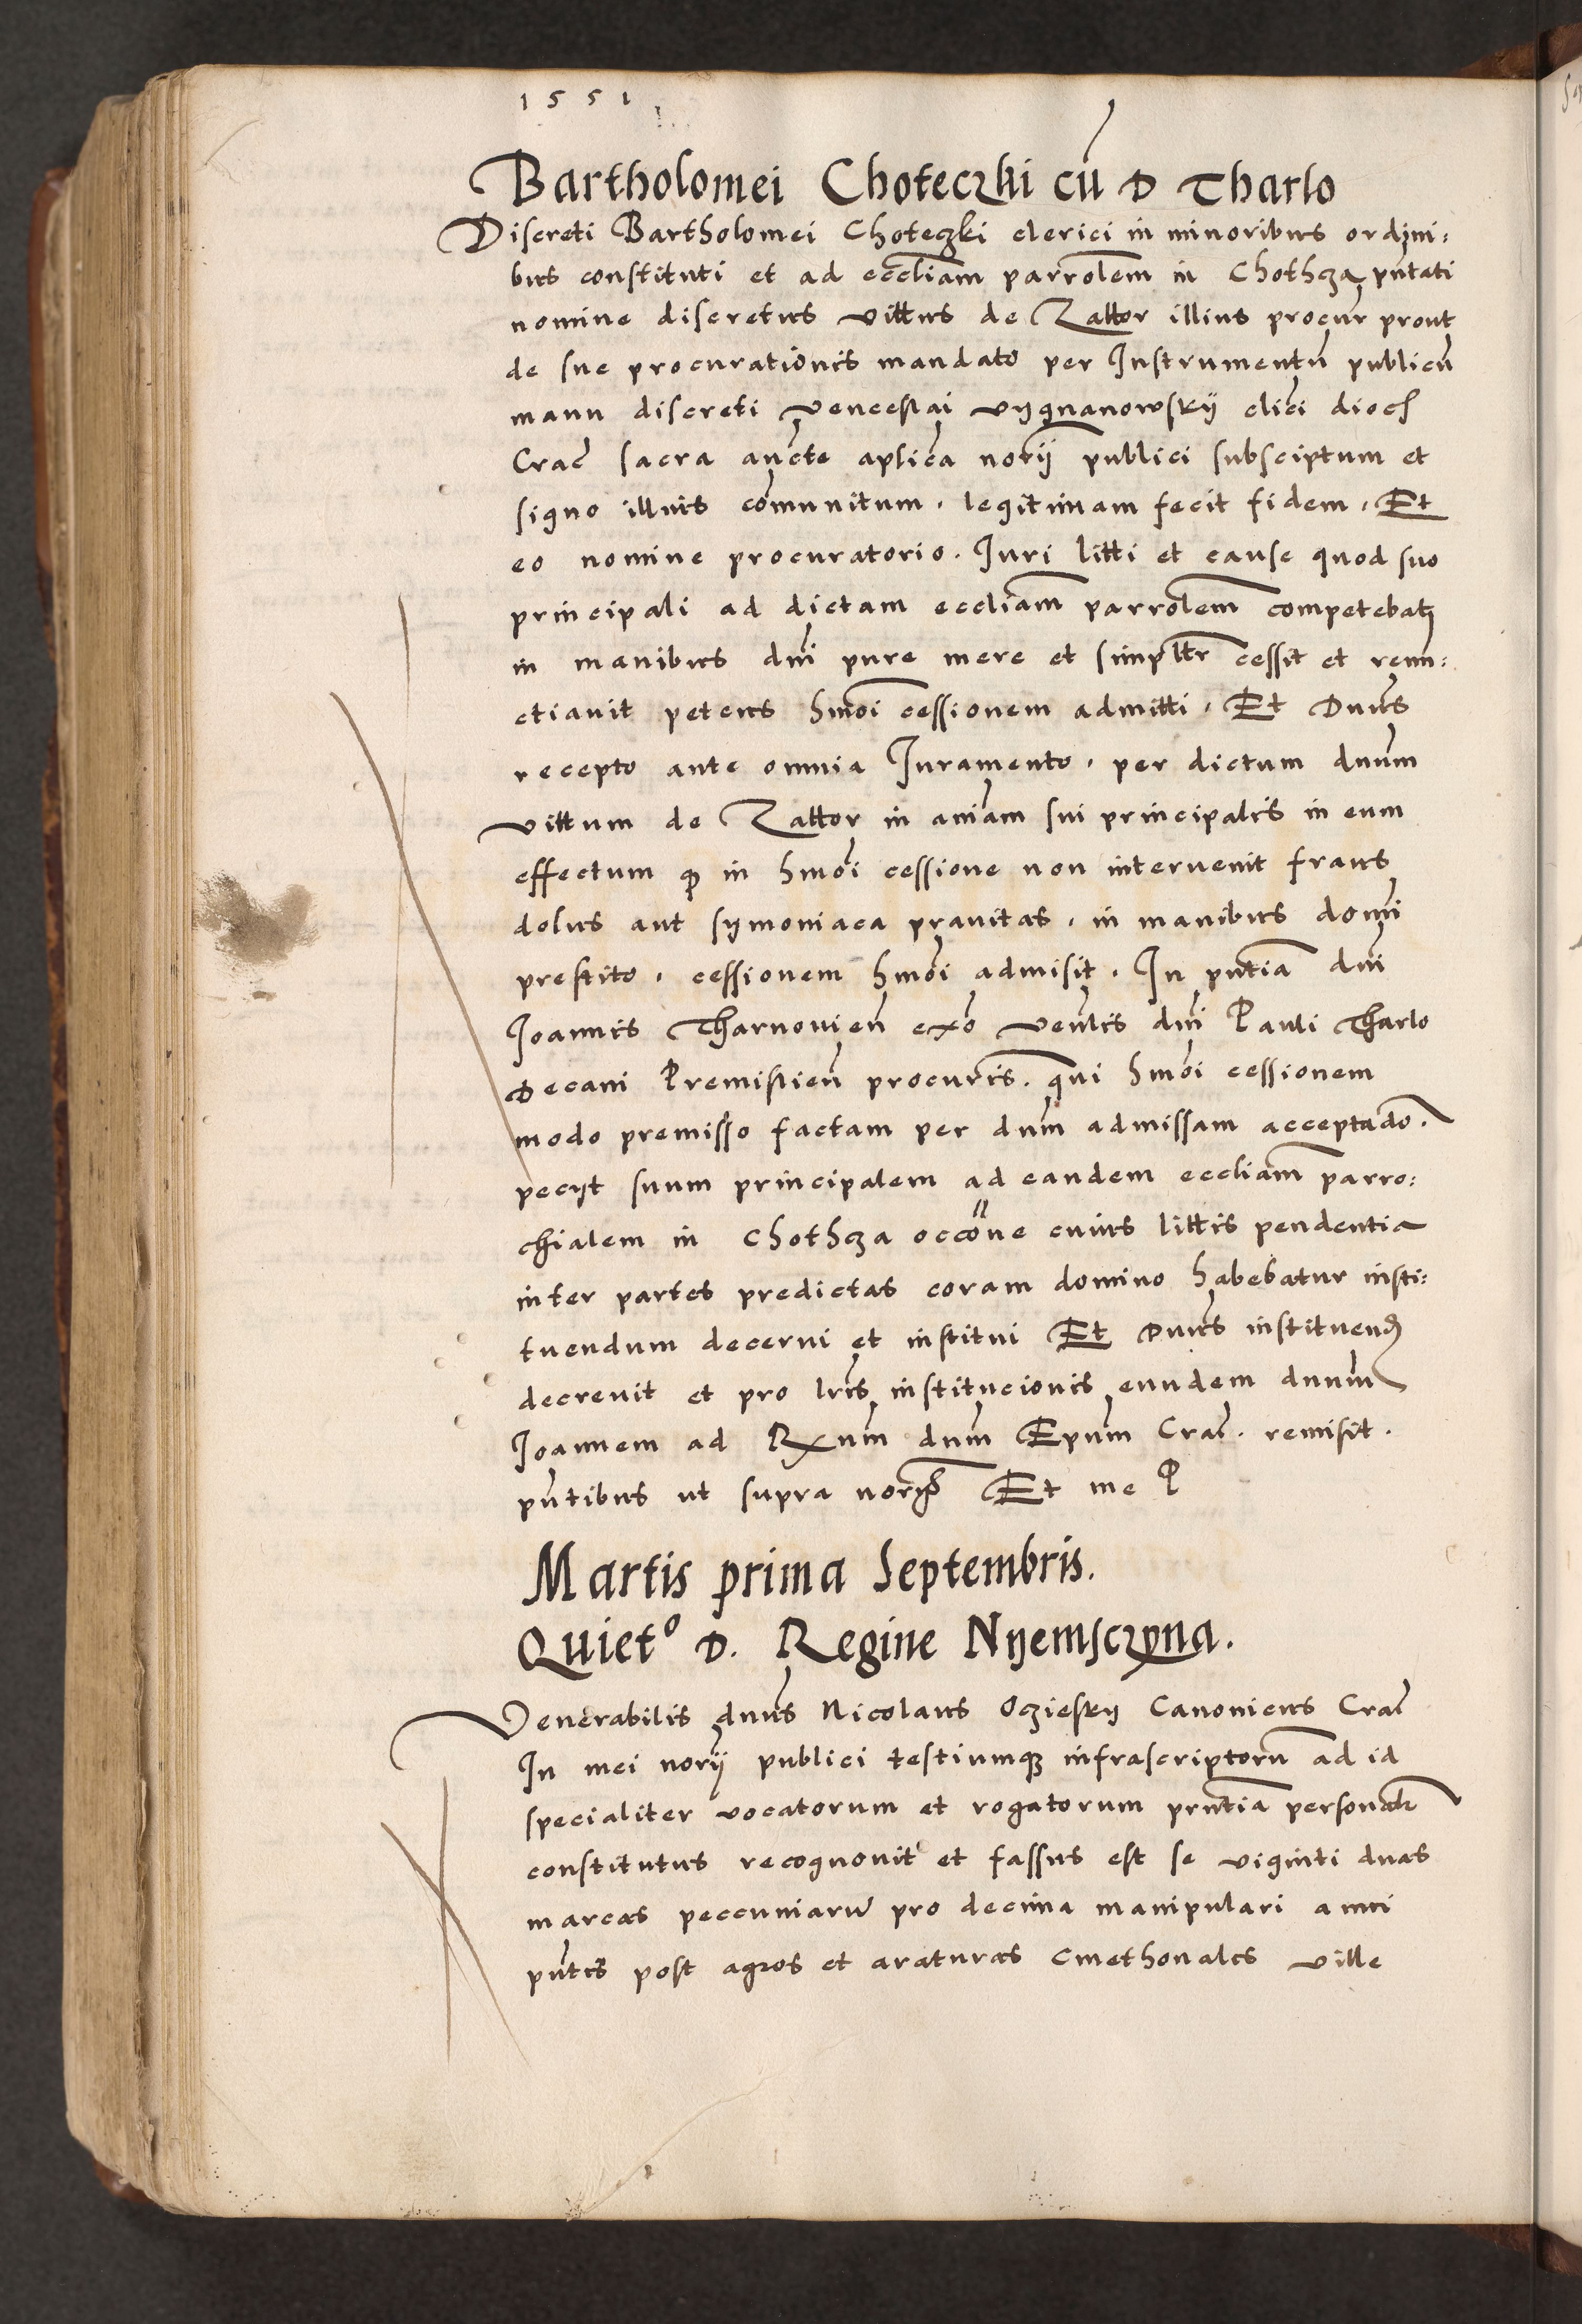 1551
Bartholomei Choteczki cū D Tharlo
Discreti Bartholomei Choteczki clerici in minoribus ordini:
bus constituti et ad eccliam parrolem in Chothcza pntati
nomine discretus Vittus de Zattor illius procur prout
de sue procurationis mandato per Instrumentū publicū
manu discreti Venceslai Vygnanowskij clici dioc
Crac sacra aucte aplica norij publici subsciptum et
signo illius comunitum. legitimam fecit fidem. Et
eo nomine procuratorio. Iuri litti et cause quod suo
principali ad dictam eccliam parrolem competebat
in manibus dni pure mere et simplr cessit et renu:
ctiavit petens hmoi cessionem admitti. Et Dnus
recepto ante omnia Iuramento. per dictum dnum
Vittum de Zattor in aniam sui principalis in eum
effectum q in hmoi cessione non intervenit fraus
dolus aut symoniaca pravitas. in manibus domi
prestito. cessionem hmoi admisit. In pntia dni
Joannis Tharnovien exo Venlis dni Pauli Tharlo
Decani Premislien procuris. qui hmoi cessionem
modo premisso factam per dnm admissam acceptādo.
pecyt suum principalem ad eandem eccliam parro:
chialem in Chothcza occone cuius littis pendentia
inter partes predictas coram domino habebatur insti:
tuendum decerni et institui Et Dnus instituend
decrevit et pro lris institucionis eundem dnum
Joannem ad Rxum dnm Epum Crac. remisit.
pntibus ut supra nor Et me P
Martis prima Septembris.
Quiet° D. Regine Nyemsczyna.
Venerabilis dnus Nicolaus Oczieskÿ Canonicus Crac
In mei norij publici testiumq infrascriptorū ad id
specialiter vocatorum et rogatorum prntia personalr
constitutus recognovit et fassus est se viginti duas
marcas peccuniarū pro decima manipulari anni
pntis post agros et araturas Cmethonales Ville